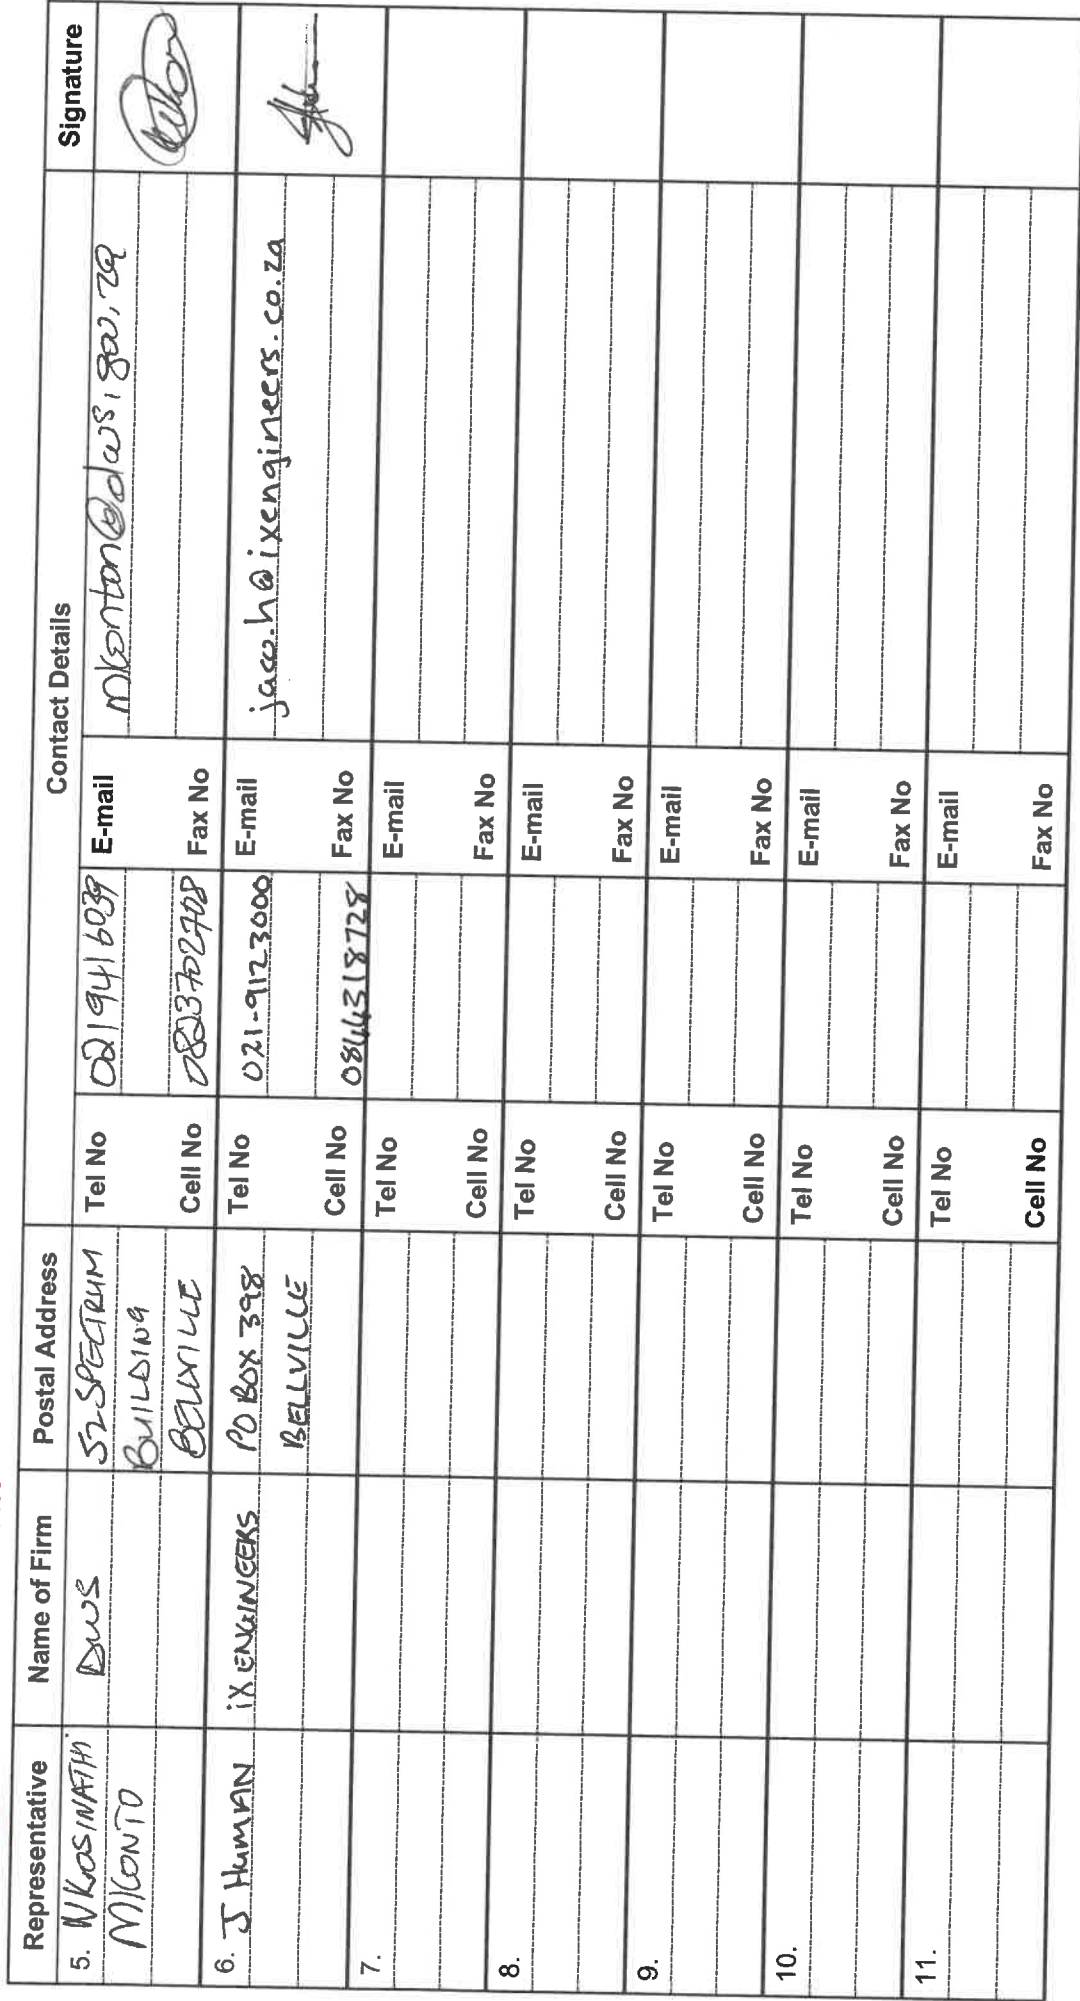 Representative Name of Firm Postal Address Contact Details Signature
5. NKOSINATHI DWS 52 SPECTRUM Tel No 021 941 6039 E-mail mkonton@dws.gov.za
MKONTO BUILDING
BELLVILLE Cell No 0823702708 Fax No
6. J HUMAN iX ENGINEERS PO BOX 398 Tel No 021-9123000 E-mail jaco.h@ixengineers.co.za
BELLVILLE
Cell No 0844318728 Fax No
7. Tel No E-mail
Cell No Fax No
8. Tel No E-mail
Cell No Fax No
9. Tel No E-mail
Cell No Fax No
10. Tel No E-mail
Cell No Fax No
11. Tel No E-mail
Cell No Fax No